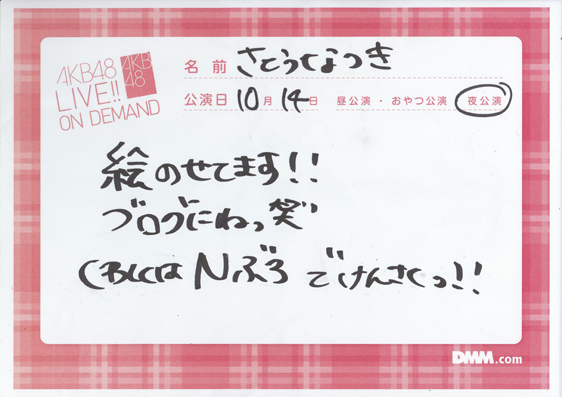 AKB48
LIVE!!
ON DEMAND
AKB
48
名前 さとうなつき
公演日 10月 14日 昼公演・おやつ公演 夜公演
絵のせてます!!
ブログにねっ笑"
くわしくは Nぶろ でけんさくっ!!
DMM.com